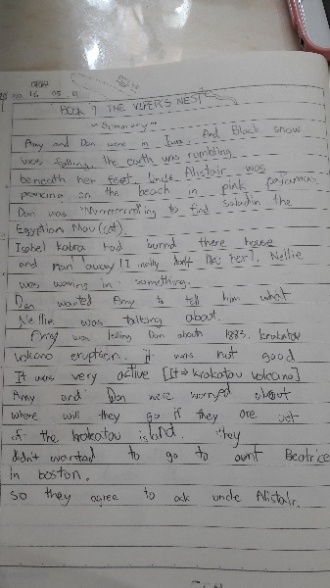 BOOK 7 THE VIPER'S NEST
~Summary~
Amy and Dan were in And Black snow
was falling, the earth was rumbling
beneath her feet. Uncle Alistair was
on the beach in pink pajamas.
Dan was to find saladin the
Egyption Mau (cat).
Isabel kabra had burnd there house
and ran away! [I really don't like her]. Nellie
was in something.
Dan wanted Amy to tell him what
Nellie was talking about.
Amy was telling Dan about 1883, krakatau
volcano eruption. it was not good
It was very active [It → krakatau volcano]
Amy and Dan were worryed about
where will they go if they are out
of the krakatau island. they
didn't wanted to go to aunt Beatrice
in boston.
so they agree to ask uncle Alistair.